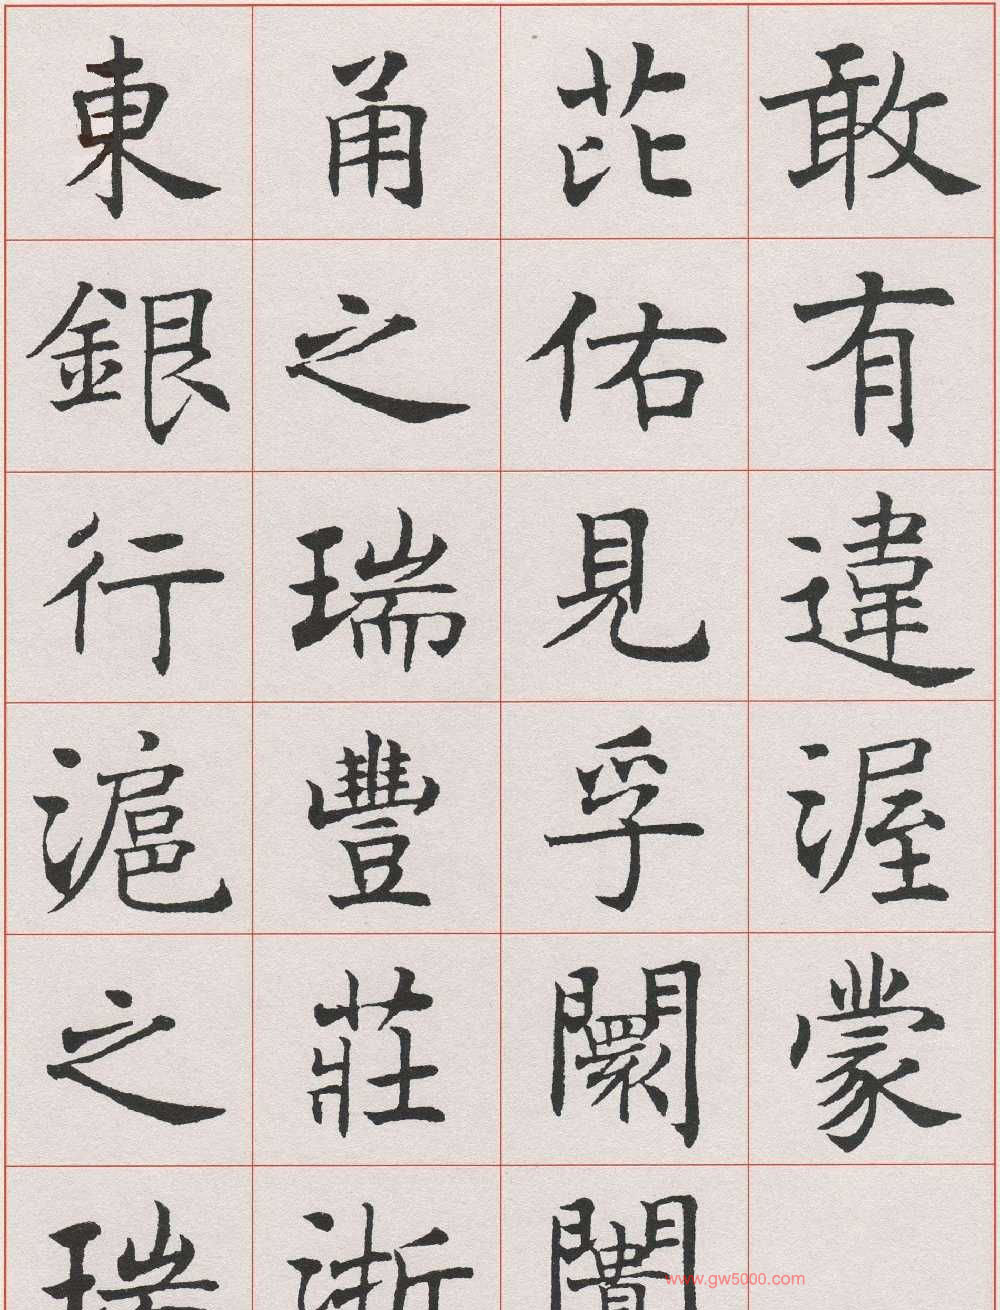 敢有違渥蒙
芘佑見孚闤闠
甬之瑞豐莊浙
東銀行滬之瑞
www.gw5000.com